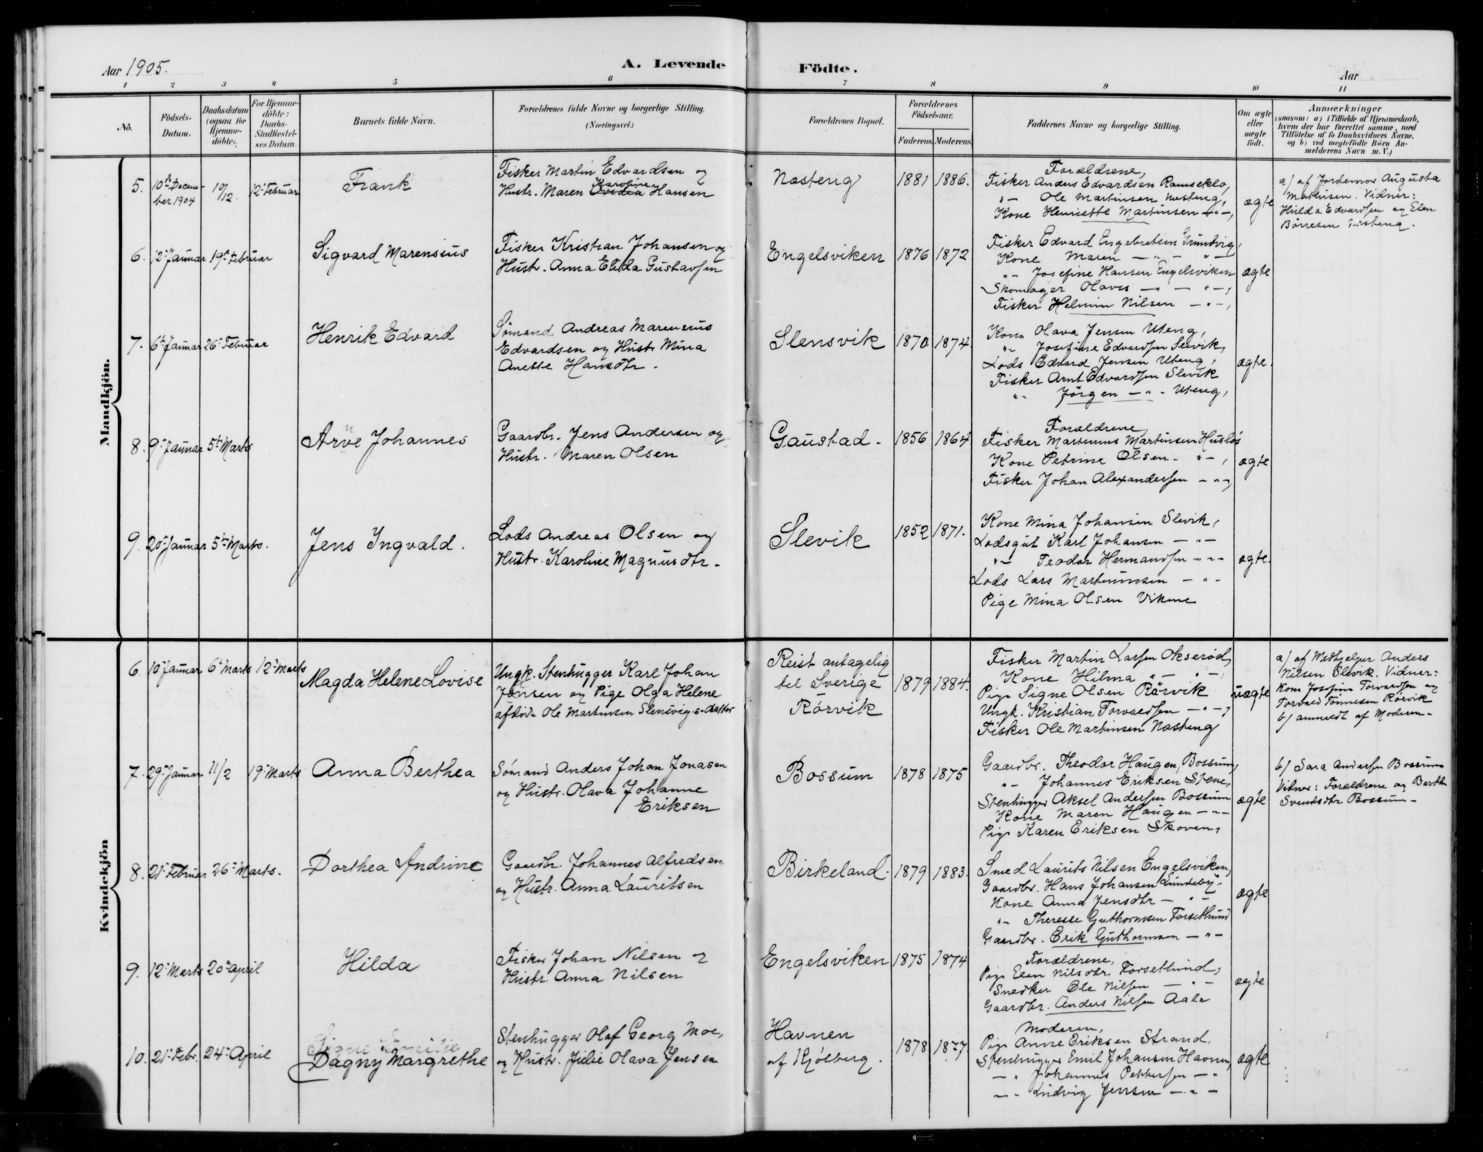 Aar 1905.
A. Levende Fødte.
Aar
1 2 3 4 5 6 7 8 9 10 11
No.
Fødsels-Datum.
Daabsdatum (ogsaa for Hjemmedøbte).
For Hjemmedøbte: Daabs-Stadfæstelses Datum.
Barnets fulde Navn.
Forældrenes fulde Navne og borgerlige Stilling.
(Næringsvei.)
Forældrenes Bopæl.
Forældrenes Fødselsaar.
Faderens Moderens
Faddernes Navne og borgerlige Stilling.
Om ægte eller uægte født.
Anmærkninger
(saasom: a) i Tilfælde af Hjemmedaab, hvem der har forrettet samme, med Tilføielse af to Daabsvidners Navne, og b) ved uægtefødte Børn Anmelderens Navn m. V.)
Mandkjøn.
5. 10de December 1904 19/12. 12 Februar
Frank
Fisker Martin Edvardsen og
Hustr. Maren Karoline Hansen
Næsteng
1881 1886.
Forældrene,
Fisker Anders Edvardsen Ramseklo,
-"- Ole Martinsen Næsteng,
Kone Henriette Martinsen -"-,
ægte
a) af Jordemor Augusta
Mathisen. Vidner:
Hulda Edvardsen og Elen
Børresen
6. 12 Januar 19 Februar
Sigvard Marensius
Fisker Kristian Johansen og
Hustr. Anna Elida Gustavsen
Engelsviken
1876 1872
Fisker Edvard Engebretsen Grundvig,
Kone Maren - " - "
-"- Josefine Hansen Engelsviken
Skomager Olaves - " - " -,
Fisker Helmin Nilsen - " -,
ægte
7. 6 Januar 26 Februar
Henrik Edvard
Sømand Andreas Marensius
Edvardsen og Hustr Mina
Anette Hansdtr.
Slensvik
1870 1874
Kone Olava Jensen Uteng,
" Josefine Edvardsen Slevik,
Lods Edvard Jensen Uteng,
Fisker Arnt Edvardsen Slevik
" Jørgen - " - Uteng,
ægte.
8. 9 Januar 5 Marts
Arne Johannes
Gaardbr. Jens Andersen og
Hustr. Maren Olsen
Gaustad.
1856 1864
Forældrene,
Fisker Martinius Martinsen Husløs
Kone Petrine Olsen - " -,
Fisker Johan Alexandersen - " -,
ægte
9. 20 Januar 5 Marts.
Jens Ingvald.
Lods Andreas Olsen og
Hustr. Karoline Magnusdtr.
Slevik
1852 1871.
Kone Mina Johansen Slevik,
Lodsgut Karl Johansen - " -
-"- Teodor Hermansen - " -
Lods Lars Martinusen - " -
Pige Mina Olsen Vikene
ægte.
Kvindekjøn
6 10 Januar 6 Marts 12 Marts
Magda Helene Lovise
Ungk. Stenhugger Karl Johan
Jensen og Pige Olga Helene
afdøde Ole Martinsen Slensvigs datter
Reist antagelig
til Sverige
Rørvik
1879 1884.
Fisker Martin Larsen Økserød,
Kone Hilma - " -,
Pige Signe Olsen Rørvik
Ungk. Kristian Torvaldsen - " -,
Fisker Ole Martinsen Næsteng
uægte
a) af Medhjelper Anders
Nilsen Slevik. Vidner:
Kone Josefine Torvardsen og
Torvald Tønnesen Rørvik
b) anmeldt af Moderen.
7. 29 Januar 11/2 19 Marts
Anna Berthea
Sømand Anders Johan Jonasen
og Hustr. Olava Johanne
Eriksen
Bossum
1878 1875
Gaardbr. Theodor Haugen, Bossum,
-"- Johannes Eriksen Stene,
Stenhugger Aksel Andersen Bossum
Kone Maren Haugen - " -
Pige Karen Eriksen Skoven,
ægte
b) Sara Andersen Bossum
Vidner: Forældrene og Berthe
Svendsdtr Bossum.
8. 21 Februar 26 Marts.
Dorthea Andrine
Gaardbr. Johannes Alfredsen
og Hustr. Anna Lauritsen
Birkeland.
1879 1883.
Smed Laurits Nilsen Engelsviken,
Gaardbr. Hans Johansen Lundeby
Kone Anna Jensdtr - " -
-"- Therese Guthormsen Forsetlund
Gaardbr. Erik Guthormsen - " -
ægte
9. 12 Marts 20 April
Hilda
Fisker Johan Nilsen og
Hustr. Anna Nilsen
Engelsviken
1875 1874
Forældrene,
Pige Elen Nilsdtr. Forsetlund,
Snedker Ole Nilsen - " -
Gaardbr. Anders Nilsen Aale
ægte
10. 21 Febr. 24 April
Dagny Margrethe
Stenhugger Olaf Georg Moe,
og Hustr. Julie Olava Jensen
Havnen
af Kjølberg.
1878 1877
Moderen,
Pige Anne Eriksen Strand,
Stenhugger Emil Johansen Havnen,
- " - Johannes Pettersen - "
- " - Ludvig Jensen - " -
ægte